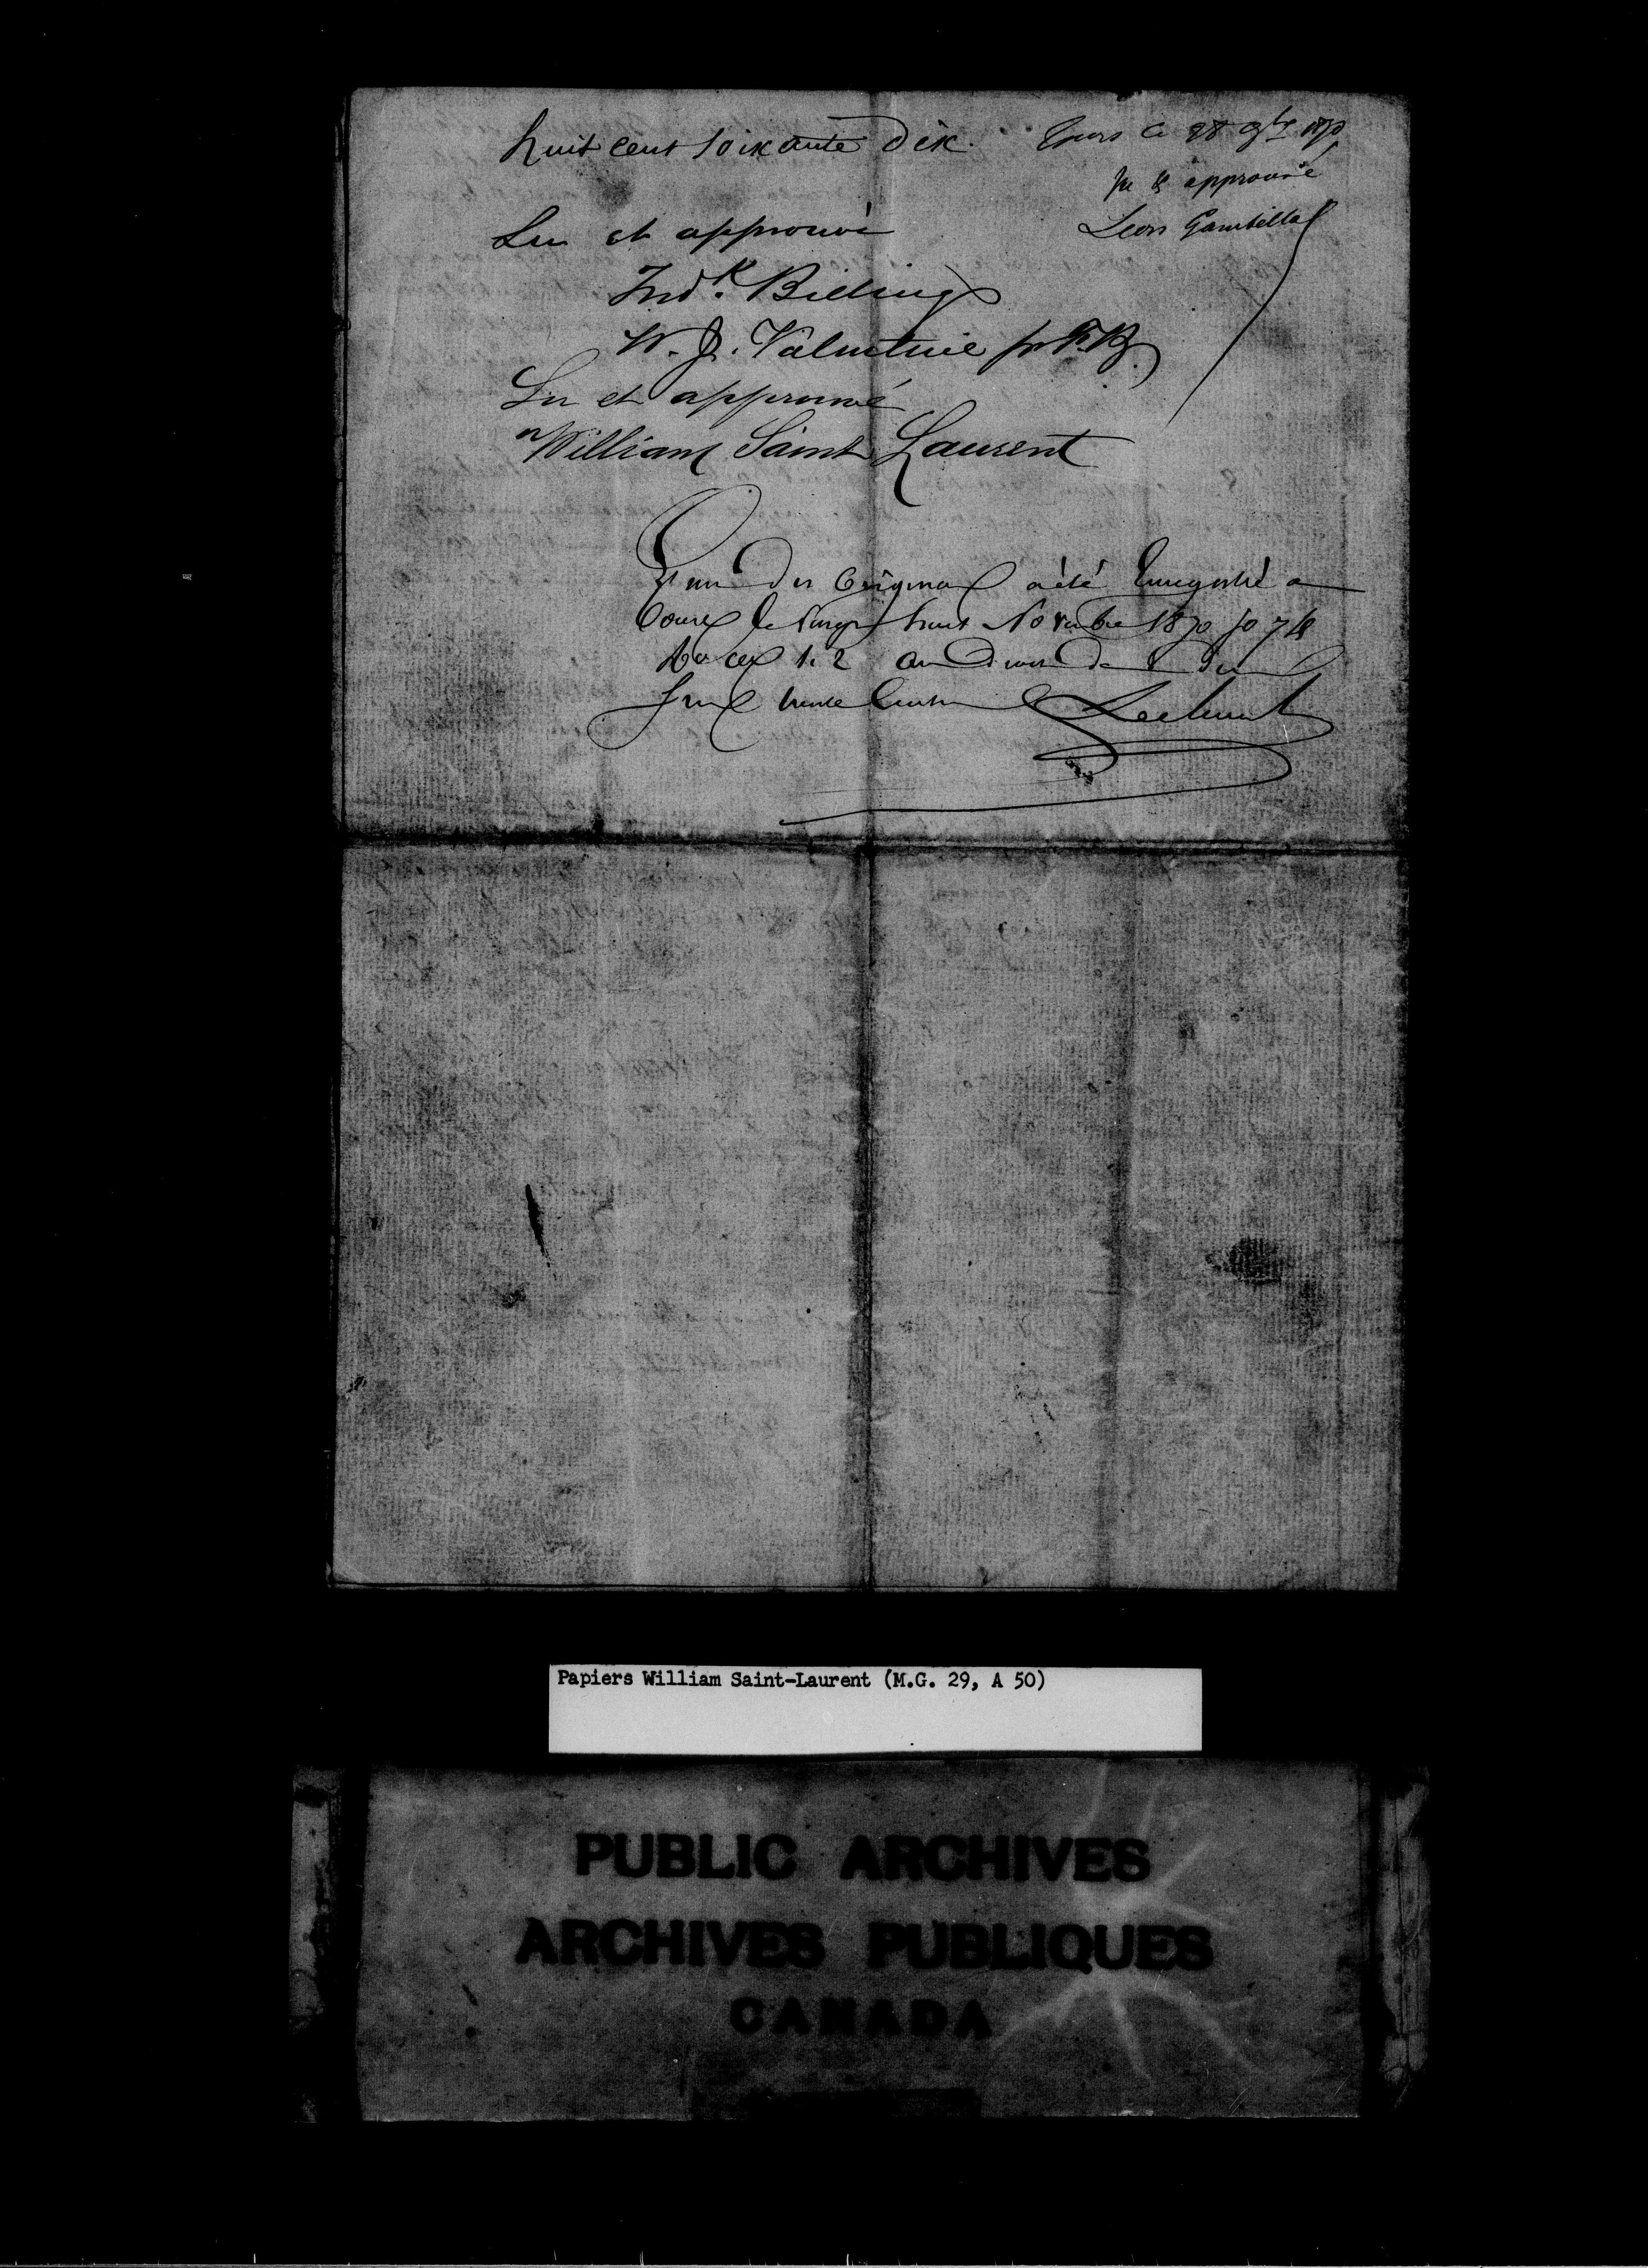 huit cent soixante dix.
Tours ce 28 9bre 1870
Vu & approuvé
Leon Gambetta
Lu et approuvé
Fredk. Billings
W. J. Valentine pr F.B.
Lu et approuvé
William Saint Laurent
un des original a été Enregistré a
Tours le Vingt huit Novembre 1870 fo 74
1. 2
Leclerc
Papiers William Saint-Laurent (M.G. 29, A 50)
PUBLIC ARCHIVES
ARCHIVES PUBLIQUES
CANADA